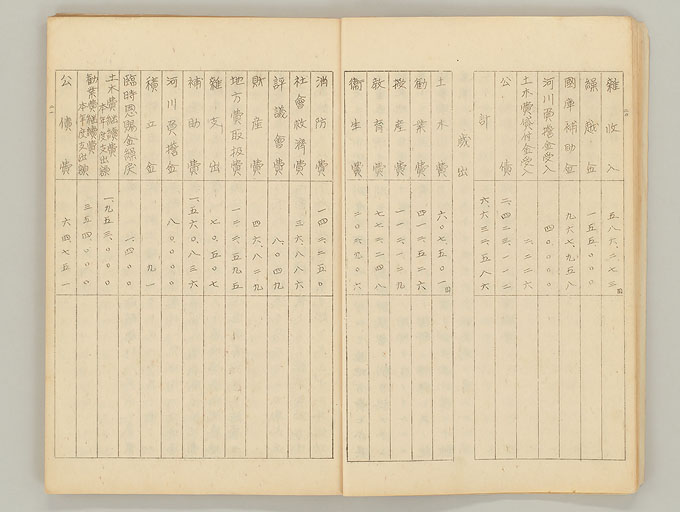 雜收入 五八六、二七三圓
繰越金 一五五、〇〇〇
國庫補助金 九六七、九五八
河川負擔金受入 四〇、〇〇〇
土木費貸付金受入 二、二二六
公債 二、四二三、一一二
計 六、六三二、五八六
歲出
土木費 六〇七、五〇一圓
勸業費 四一六、五二六
授産費 一一二、一二九
敎育費 七七三、二四八
衞生費 二〇六、九〇六
消防費 一四二、二五〇
社會救濟費 三六、八八六
評議會費 八、〇四九
財産費 四六、八二九
地方費取扱費 一二三、五九五
雜支出 七〇、五〇七
補助費 一、五六〇、八三六
河川負擔金 八〇、〇〇〇
積立金 九一
臨時恩賜金繰戻 一、四〇〇
土木費繼續費
本年度支出額 一、九五三、〇〇〇
勸業費繼續費
本年度支出額 三五四、〇〇〇
公債費 六四七五一